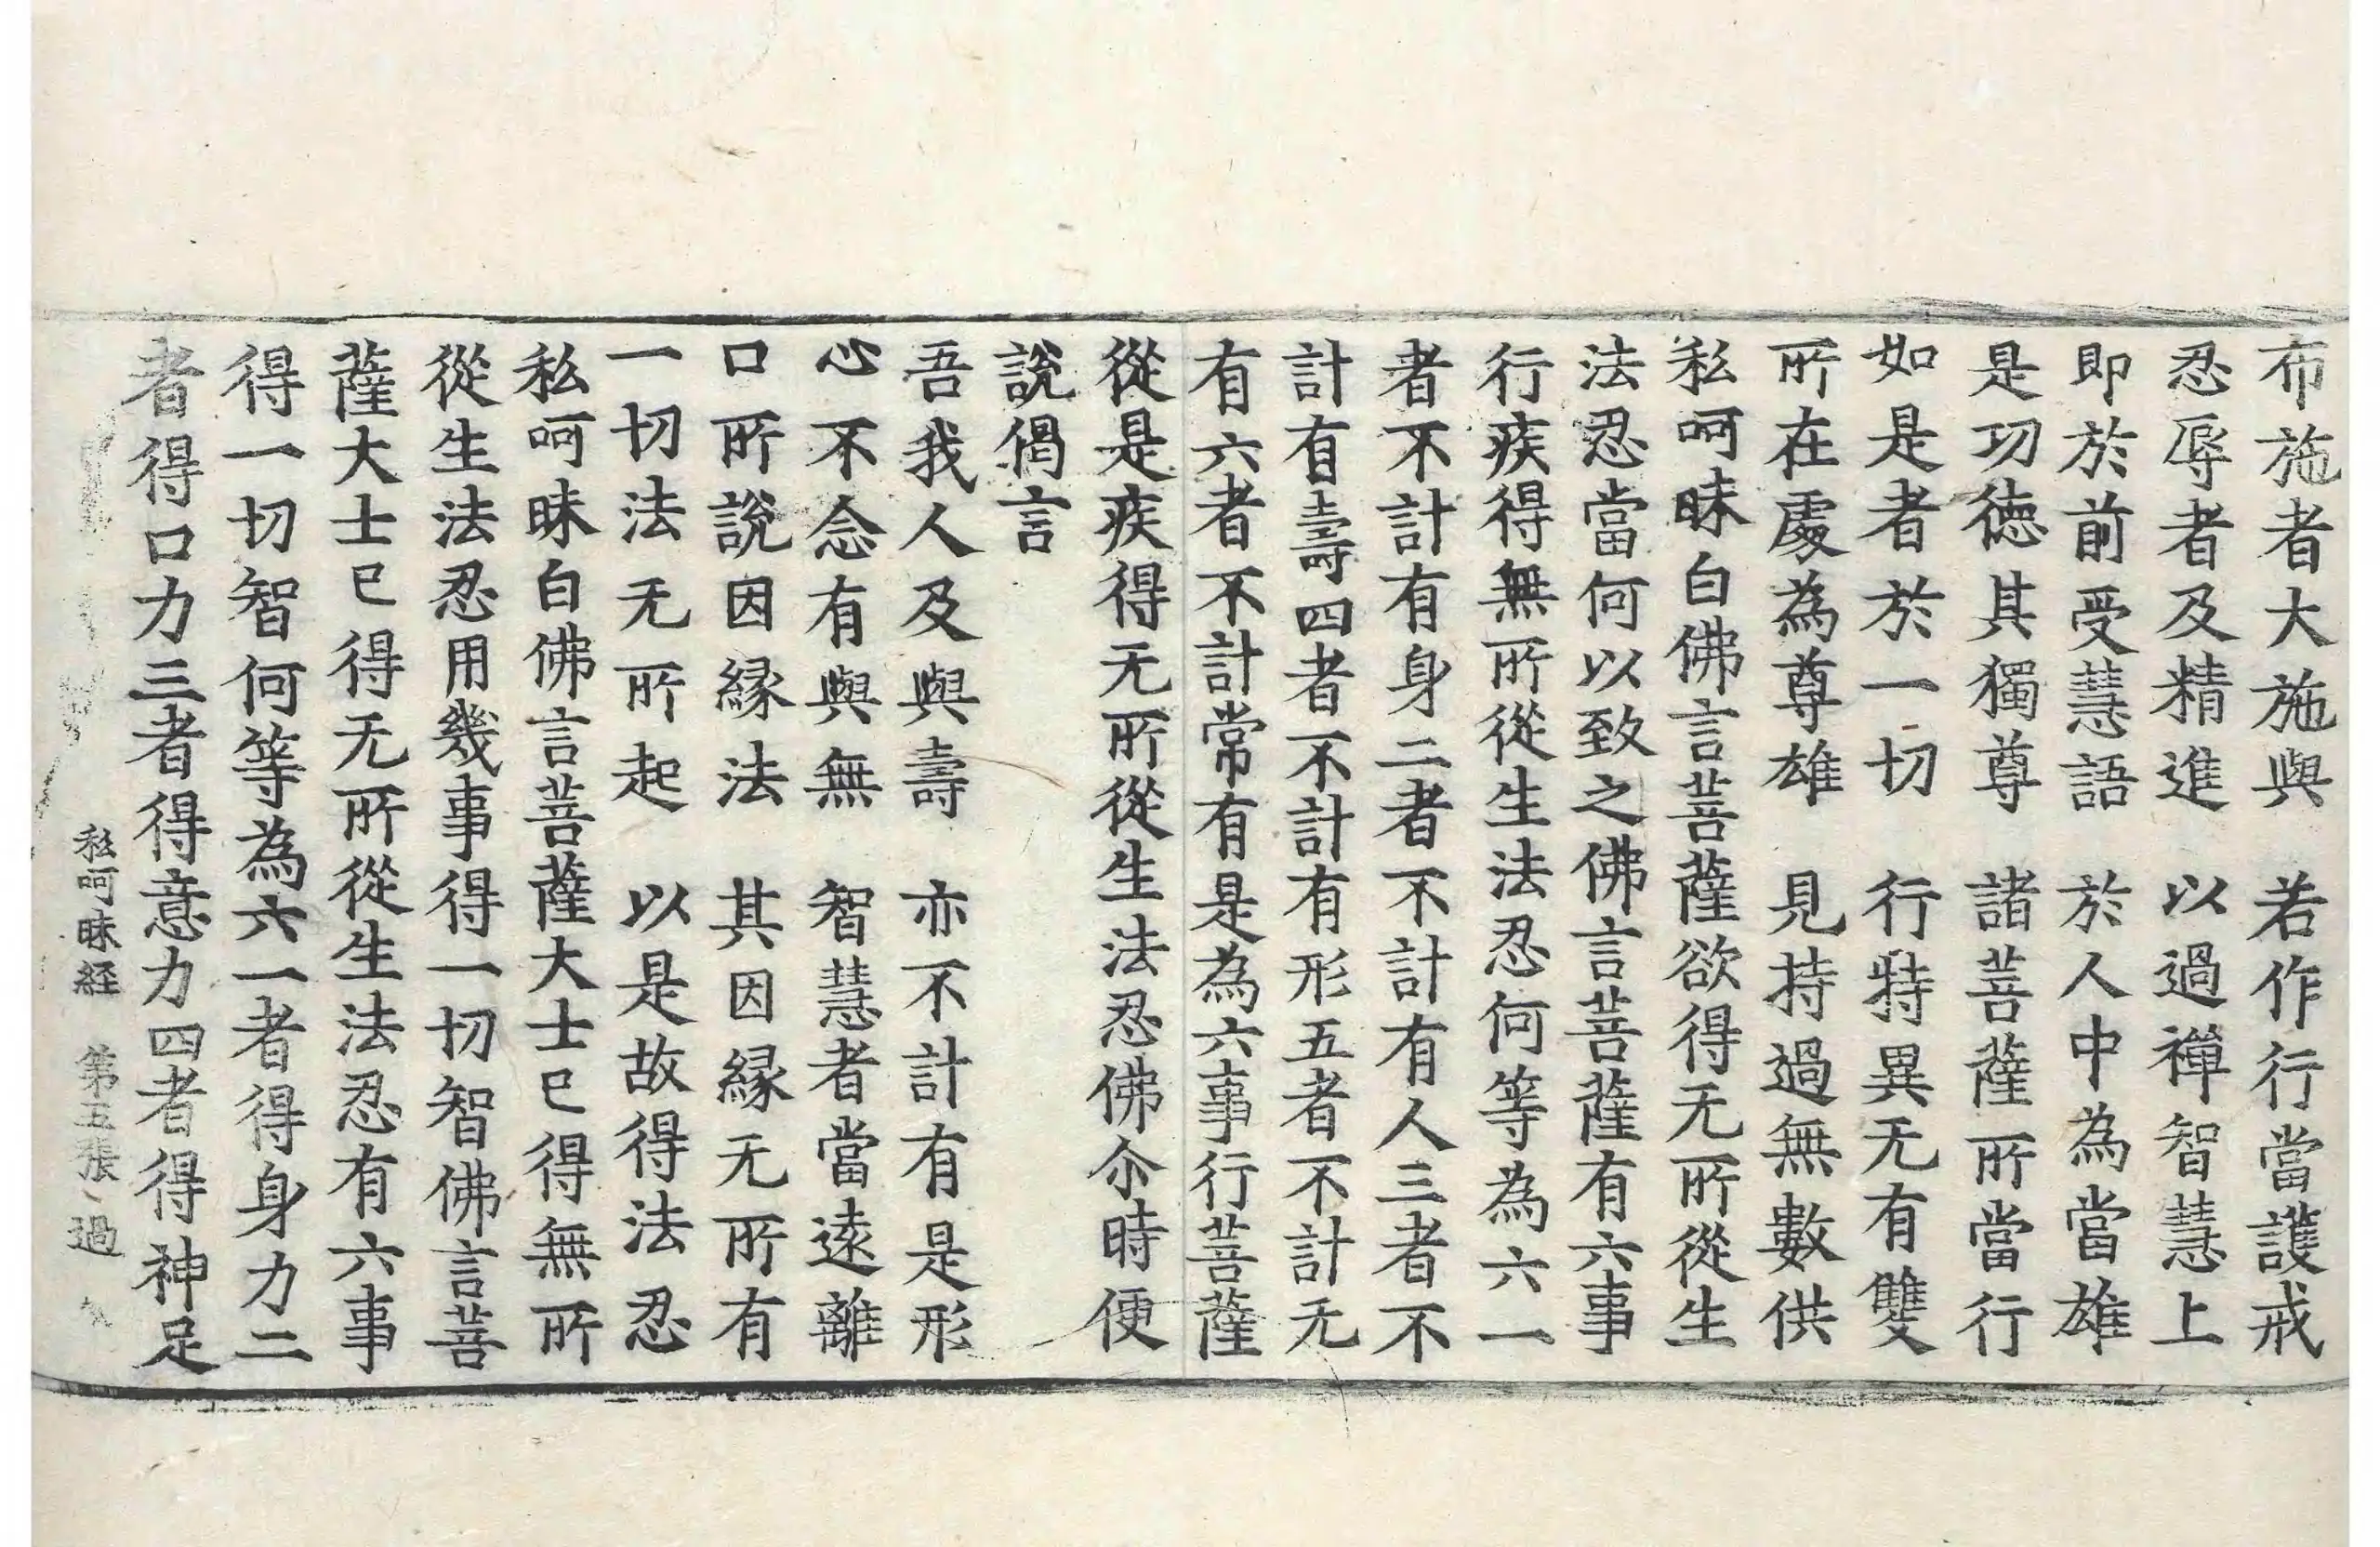 布施者大施與　若作行當護戒
忍辱者及精進　以過禪智慧上
即於前受慧語　於人中為當雄
是功德其獨尊　諸菩薩所當行
如是者於一切　行特異无有雙
所在處為尊雄　見持過無數供
私呵昧白佛言菩薩欲得无所從生
法忍當何以致之佛言菩薩有六事
行疾得無所從生法忍何等為六一
者不計有身二者不計有人三者不
計有壽四者不計有形五者不計无
有六者不計常有是為六事行菩薩
從是疾得无所從生法忍佛尒時便
說偈言
吾我人及與壽　亦不計有是形
心不念有與無　智慧者當遠離
口所說因緣法　其因緣无所有
一切法无所起　以是故得法忍
私呵昧白佛言菩薩大士已得無所
從生法忍用幾事得一切智佛言菩
薩大士已得无所從生法忍有六事
得一切智何等為六一者得身力二
者得口力三者得意力四者得神足
私呵昧経　第五張　過